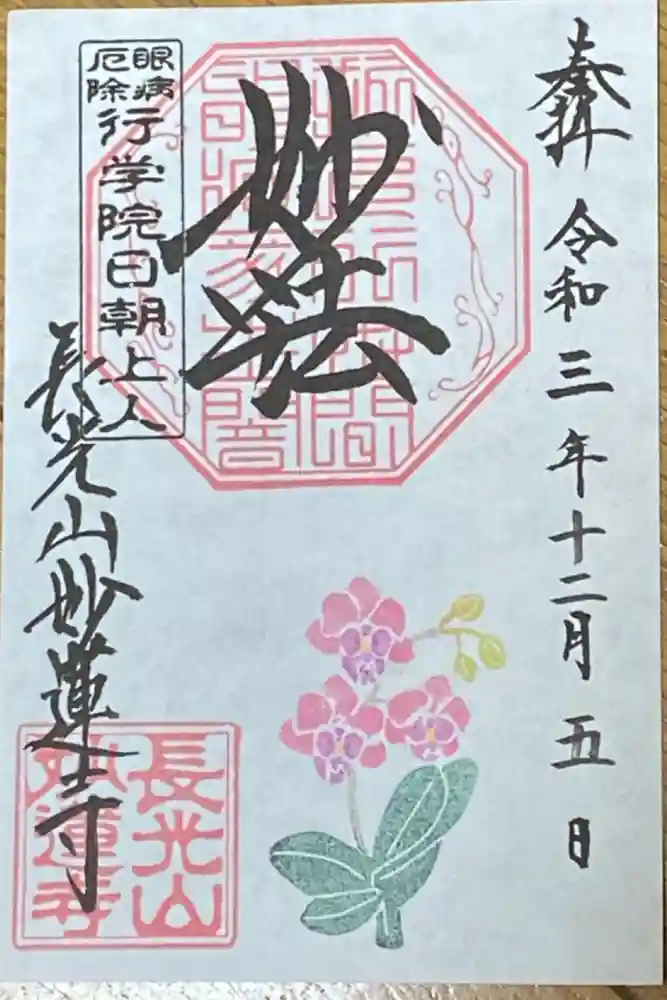 奉拝 令和三年十二月五日
妙法
眼病
厄除
行学院日朝上人
長光山妙蓮寺
長光山
妙蓮寺